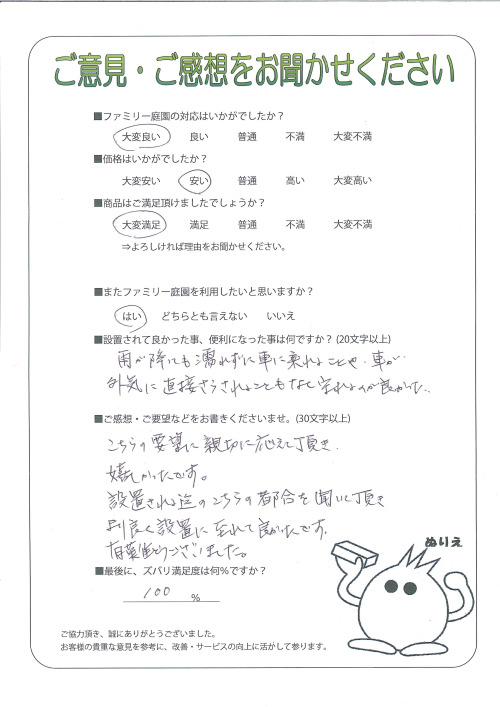 ご意見・ご感想をお聞かせください
■ファミリー庭園の対応はいかがでしたか？
大変良い 良い 普通 不満 大変不満
■価格はいかがでしたか？
大変安い 安い 普通 高い 大変高い
■商品はご満足頂けましたでしょうか？
大変満足 満足 普通 不満 大変不満
⇒よろしければ理由をお聞かせください。
■またファミリー庭園を利用したいと思いますか？
はい どちらとも言えない いいえ
■設置されて良かった事、便利になった事は何ですか？(20文字以上)
雨が降っても濡れずに車に乗れることや、車が
外気に直接さらされることもなく守れるのが良かった。
■ご感想・ご要望などをお書きくださいませ。(30文字以上)
こちらの要望に親切に応えて頂き
嬉しかったです。
設置される迄のこちらの都合を聞いて頂き
良く設置に至れて良かったです。
ございました。
■最後に、ズバリ満足度は何％ですか？
100 %
ぬりえ
ご協力頂き、誠にありがとうございました。
お客様の貴重な意見を参考に、改善・サービスの向上に活かして参ります。